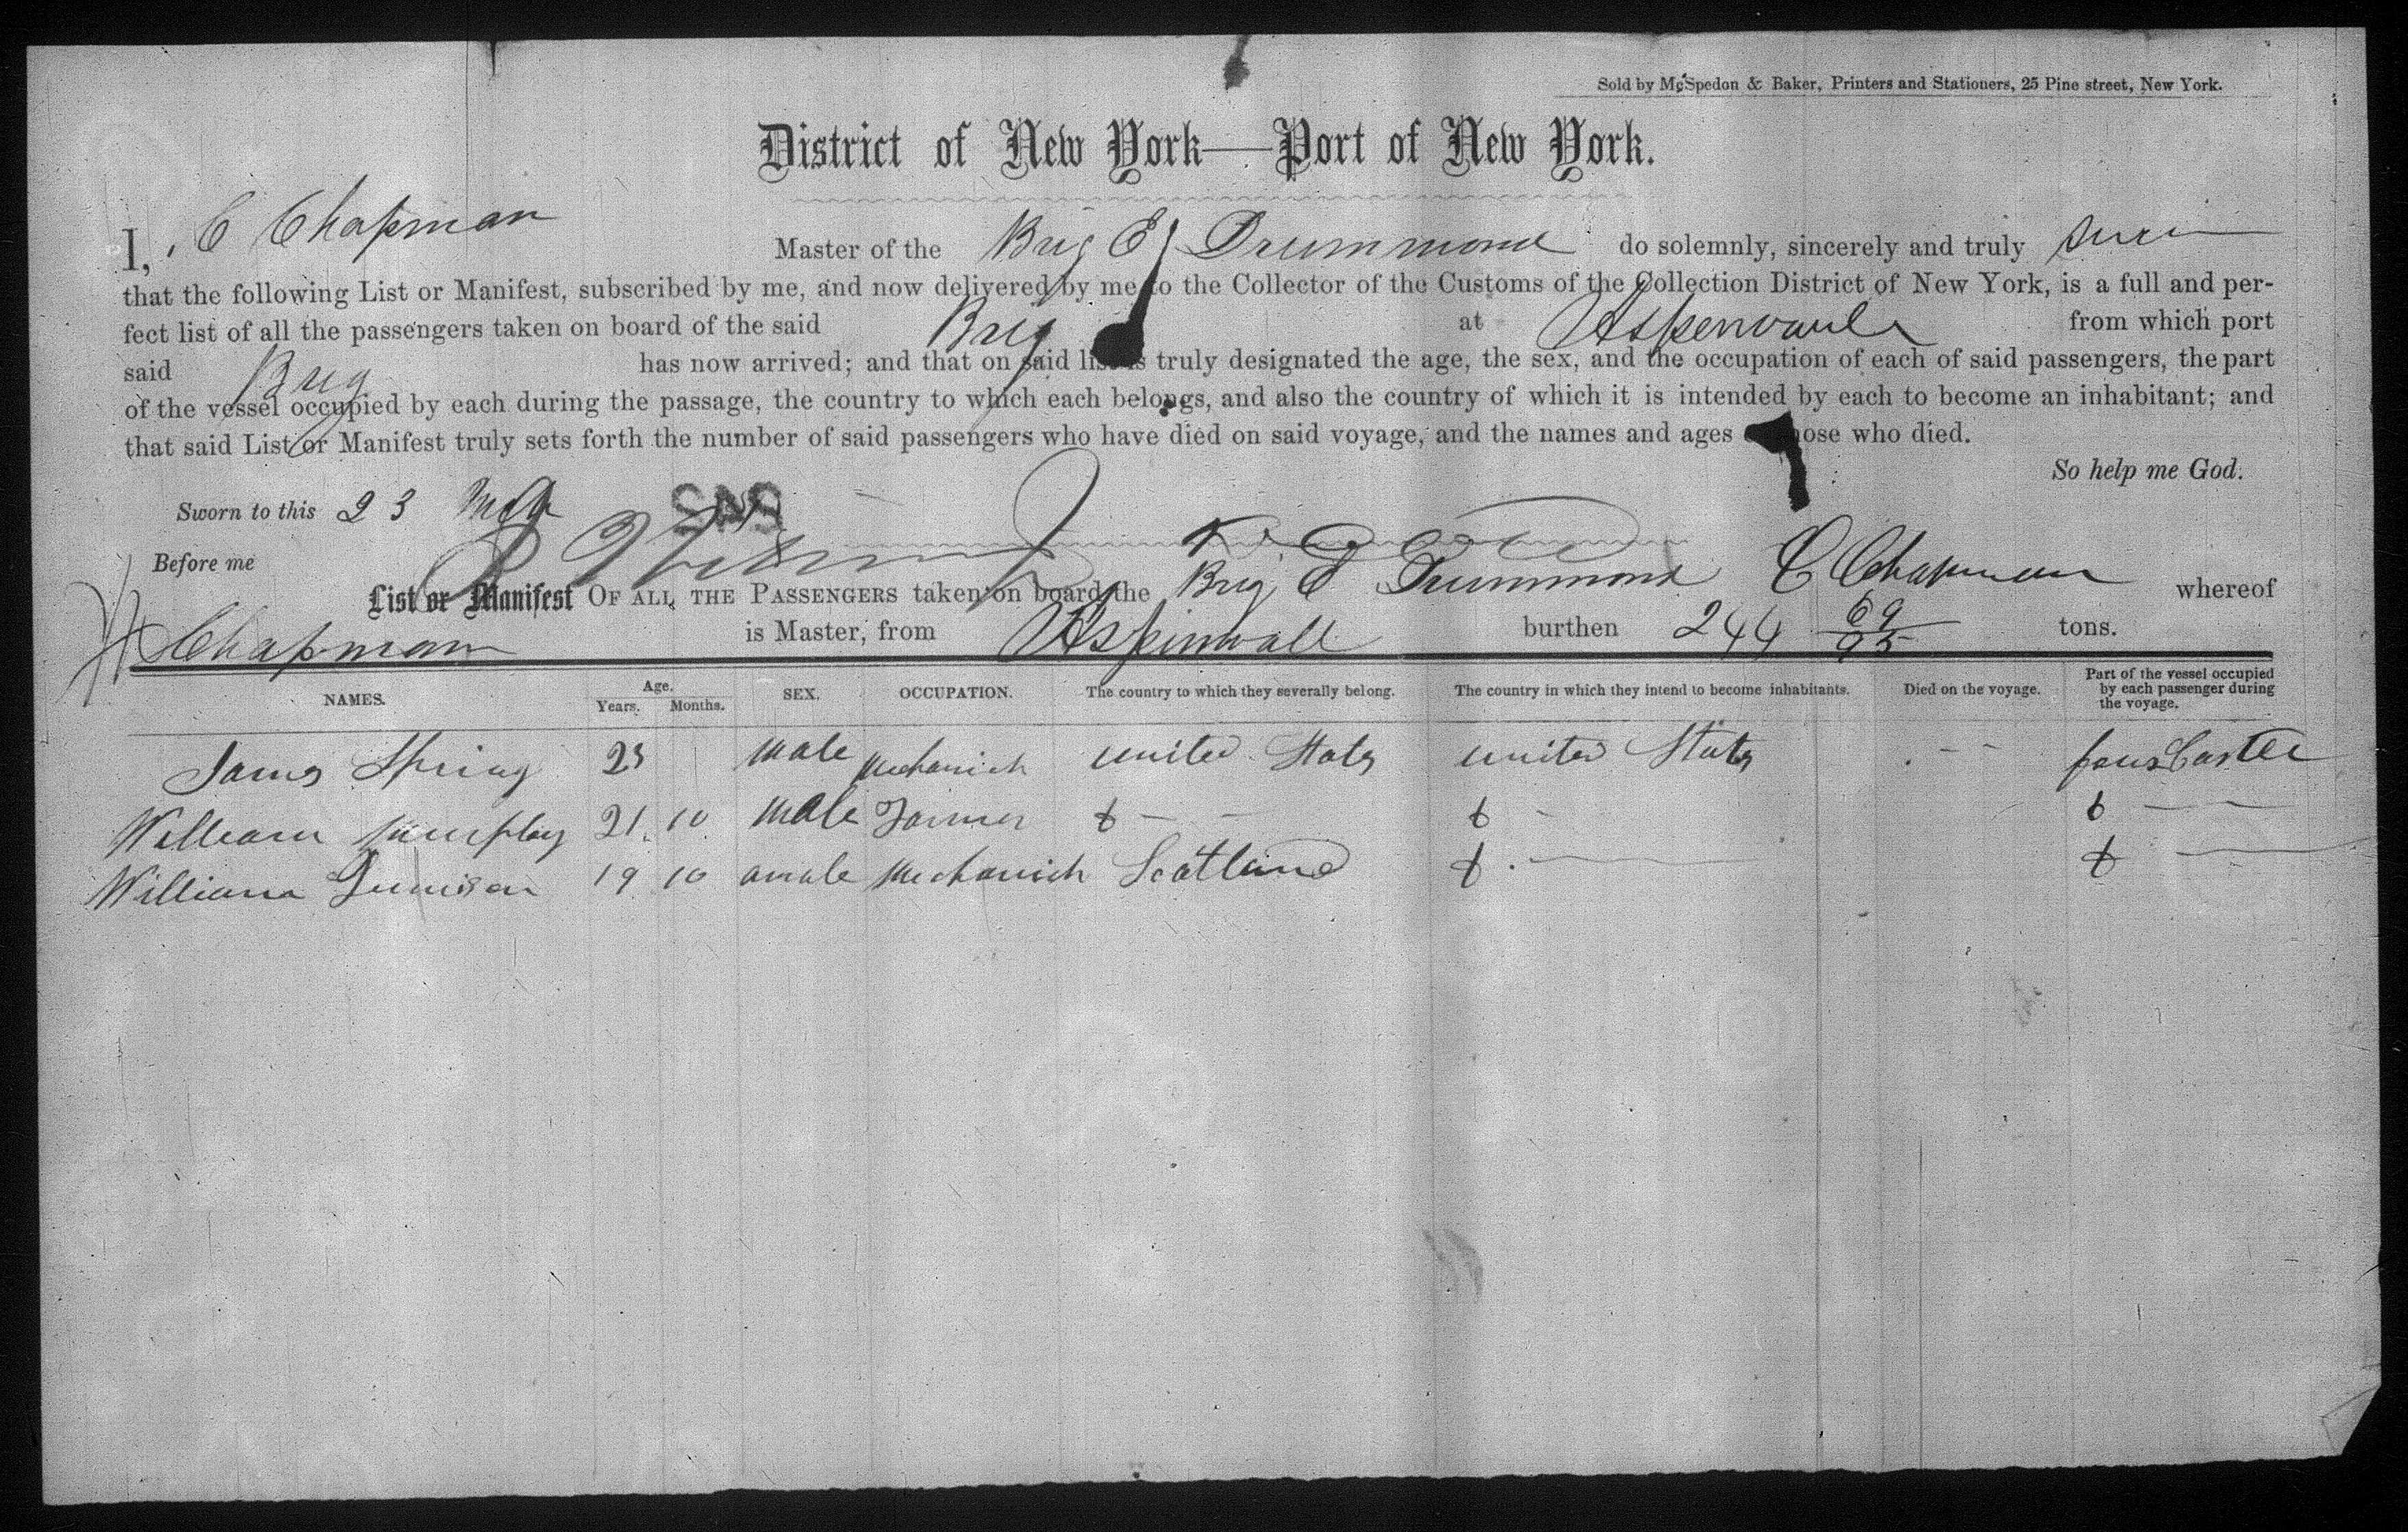 Sold by McSpedon & Baker, Printers and Stationers, 25 Pine street, New York.
District of New York—Port of New York.
I, C Chapman Master of the Brig E Drummond do solemnly, sincerely and truly
that the following List or Manifest, subscribed by me, and now delivered by me to the Collector of the Customs of the Collection District of New York, is a full and per-
fect list of all the passengers taken on board of the said Brig at from which port
said Brig has now arrived; and that on said list is truly designated the age, the sex, and the occupation of each of said passengers, the part
of the vessel occupied by each during the passage, the country to which each belongs, and also the country of which it is intended by each to become an inhabitant; and
that said List or Manifest truly sets forth the number of said passengers who have died on said voyage, and the names and ages of those who died.
So help me God.
Sworn to this 23
Before me
List or Manifest OF ALL THE PASSENGERS taken on board the Brig E Drummond C Chapman whereof
Chapman is Master, from Aspinwall burthen 244 69/95 tons.
NAMES. Age. Years. Months. SEX. OCCUPATION. The country to which they severally belong. The country in which they intend to become inhabitants. Died on the voyage. Part of the vessel occupied by each passenger during the voyage.
James Spring 23 male mechanich united States united States
William 21 10 male Farmer
William 19 10 male mechanich Scotland